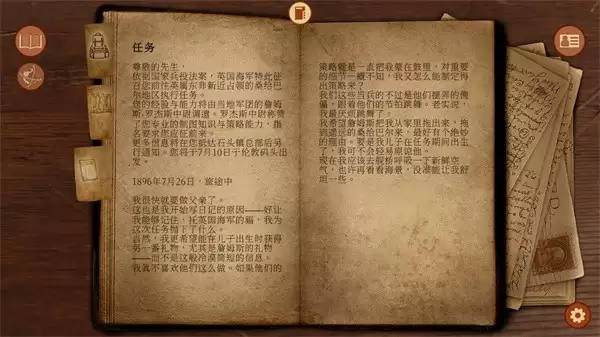 任务
尊敬的先生，
依据国家兵役法案，英国海军特此征
召您前往英属东非新近占领的桑给巴
尔地区执行任务。
您的经验与能力将由当地军团的詹姆
斯·罗杰斯中尉调遣。罗杰斯中尉称赞
了您专业的制图知识与策略能力，指
名要求您应征前来。
更多信息将在您抵达石头镇总部后另
行通知。您将于7月10日于伦敦码头出
发。
1896年7月26日，旅途中
我很快就要做父亲了。
这也是我开始写日记的原因——好让
我能够记住，托英国海军的福，我为
这次任务抛下了什么。
当然，我更希望能在儿子出生时获得
另一番礼物，尤其是詹姆斯的礼物
——而不是这般冷漠简短的信息。
我真不喜欢他们这么做。如果他们的
策略就是一直把我蒙在鼓里，对重要
的细节一概不知，我又怎么能制定得
出策略来？
我们这些当兵的不过是他们摆弄的傀
儡，跟着他们的节拍跳舞。老实说，
我最厌烦跳舞了。
我希望詹姆斯把我从家里拖出来，拖
到遥远的桑给巴尔来，最好有个绝妙
的理由。要是我儿子在任务期间出生
了，我可不会轻易原谅他。
现在我应该去舰桥呼吸一下新鲜空
气，也许再看看海景，没准能让我舒
坦一些。